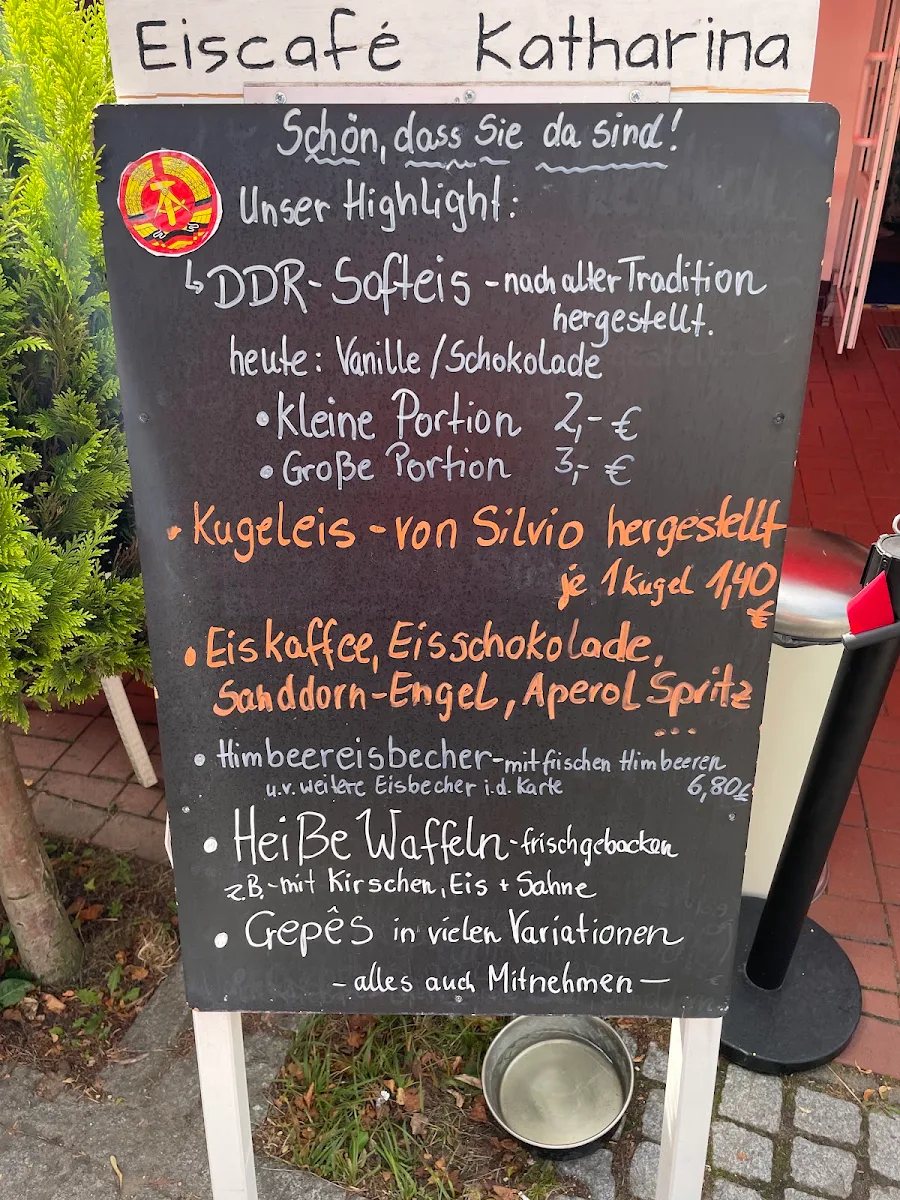 Eiscafé Katharina
Schön, dass Sie da sind!
Unser Highlight:
↳ DDR-Softeis - nach alter Tradition
hergestellt.
heute: Vanille / Schokolade
• Kleine Portion 2,- €
• Große Portion 3,- €
• Kugeleis - von Silvio hergestellt
je 1 Kugel 1,40
€
• Eiskaffee, Eisschokolade,
Sanddorn-Engel, Aperol Spritz
...
• Himbeereisbecher - mit frischen Himbeeren
u.v. weitere Eisbecher i.d. Karte 6,80€
• Heiße Waffeln - frischgebacken
z.B. - mit Kirschen, Eis + Sahne
• Gepês in vielen Variationen
- alles auch Mitnehmen —